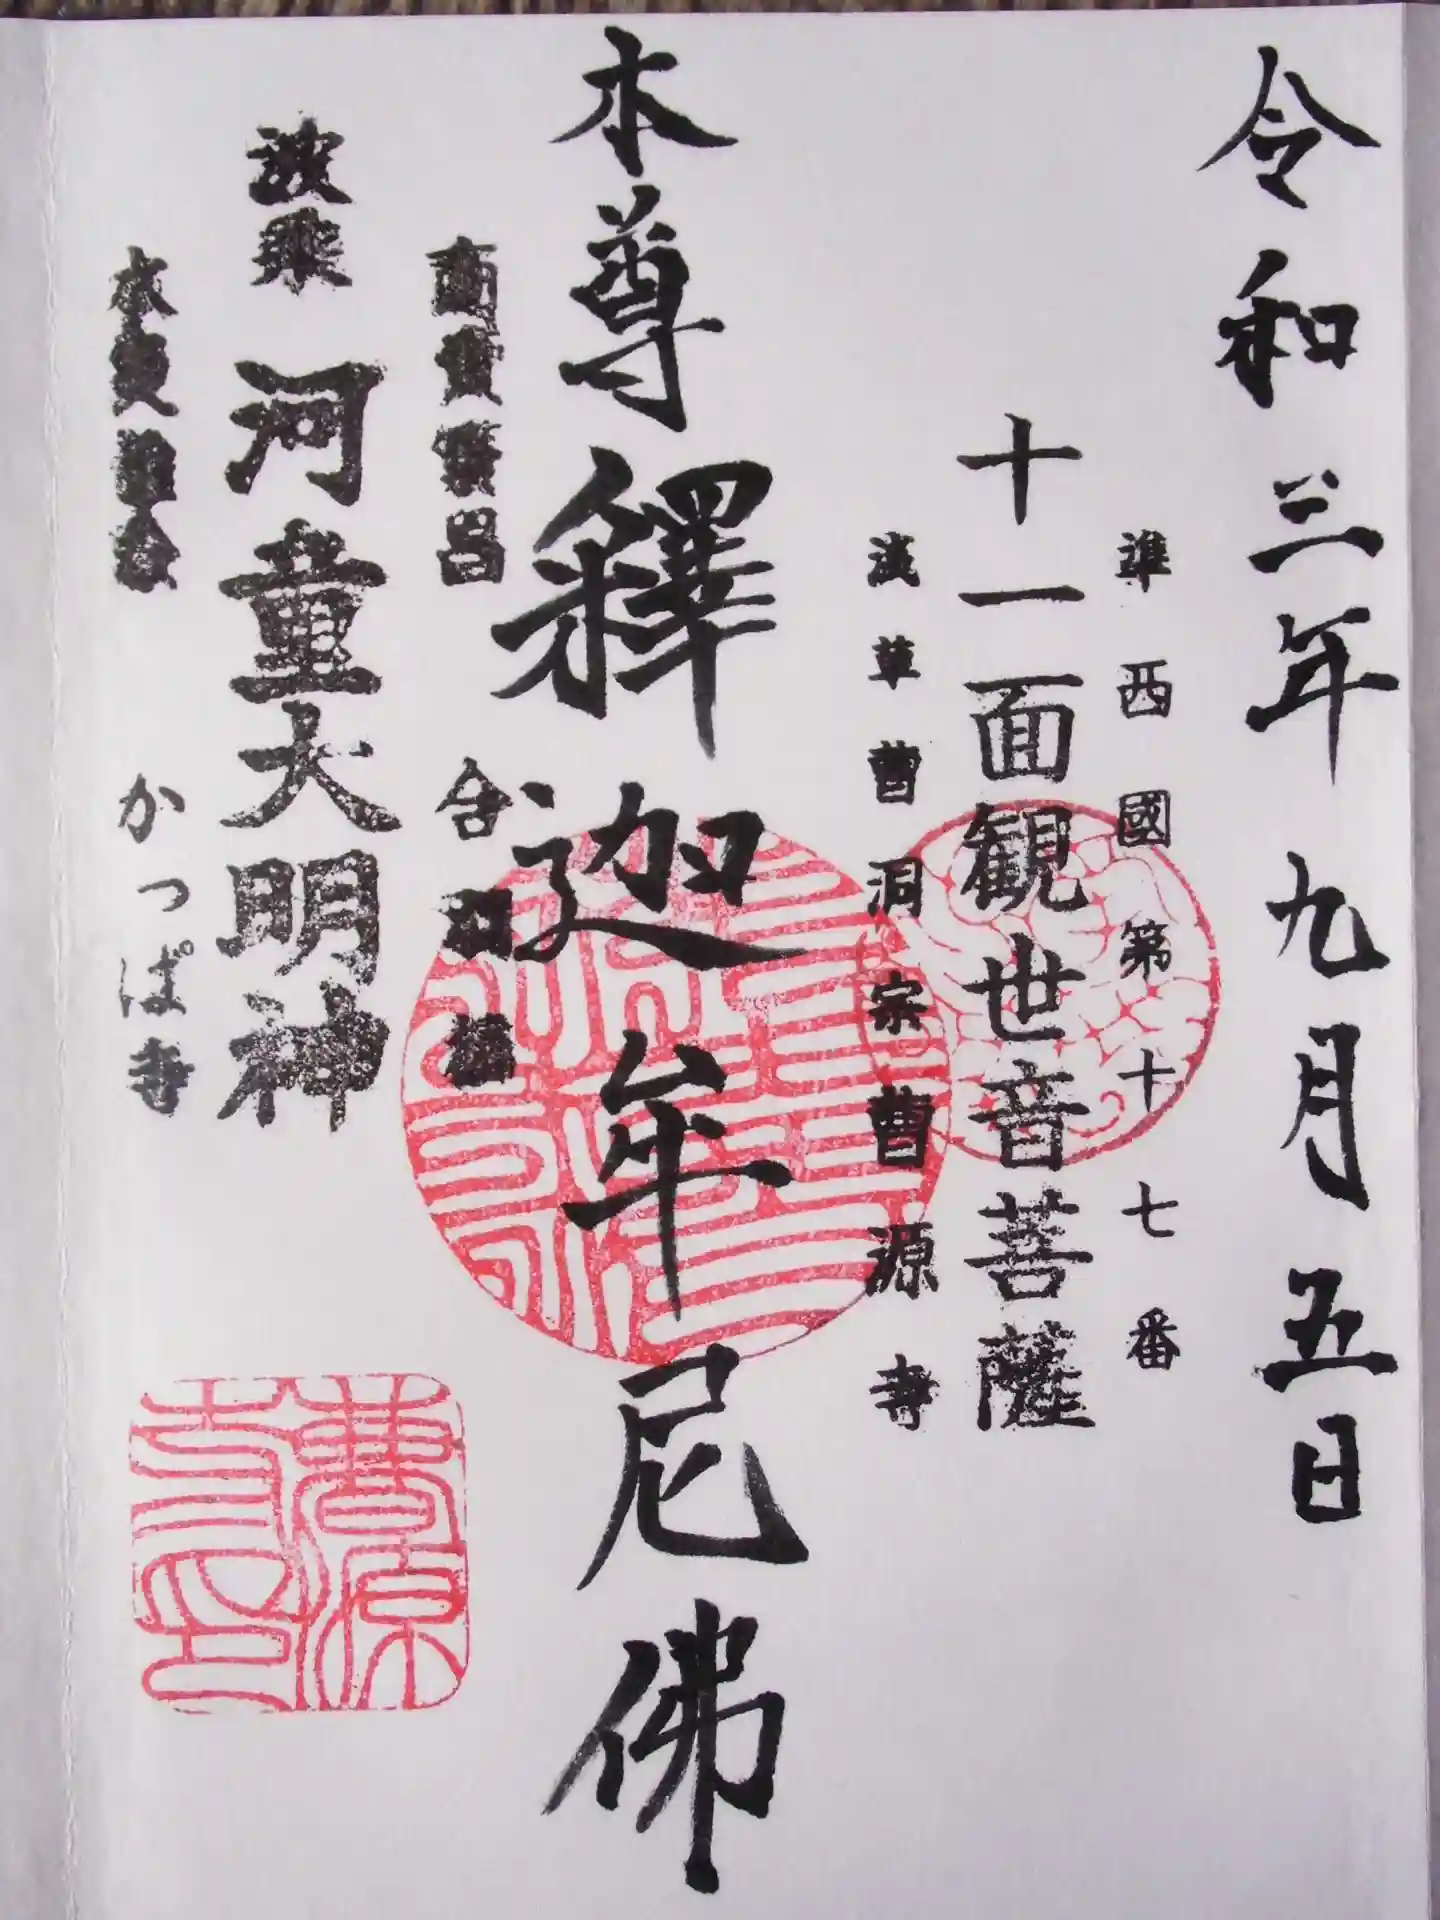 令和三年九月五日
準西國第十七番
十一面観世音菩薩
浅草曹洞宗曹源寺
本尊釋迦牟尼佛
商賣繁昌 合羽橋
波乗 河童大明神
かっぱ寺
曹源寺印